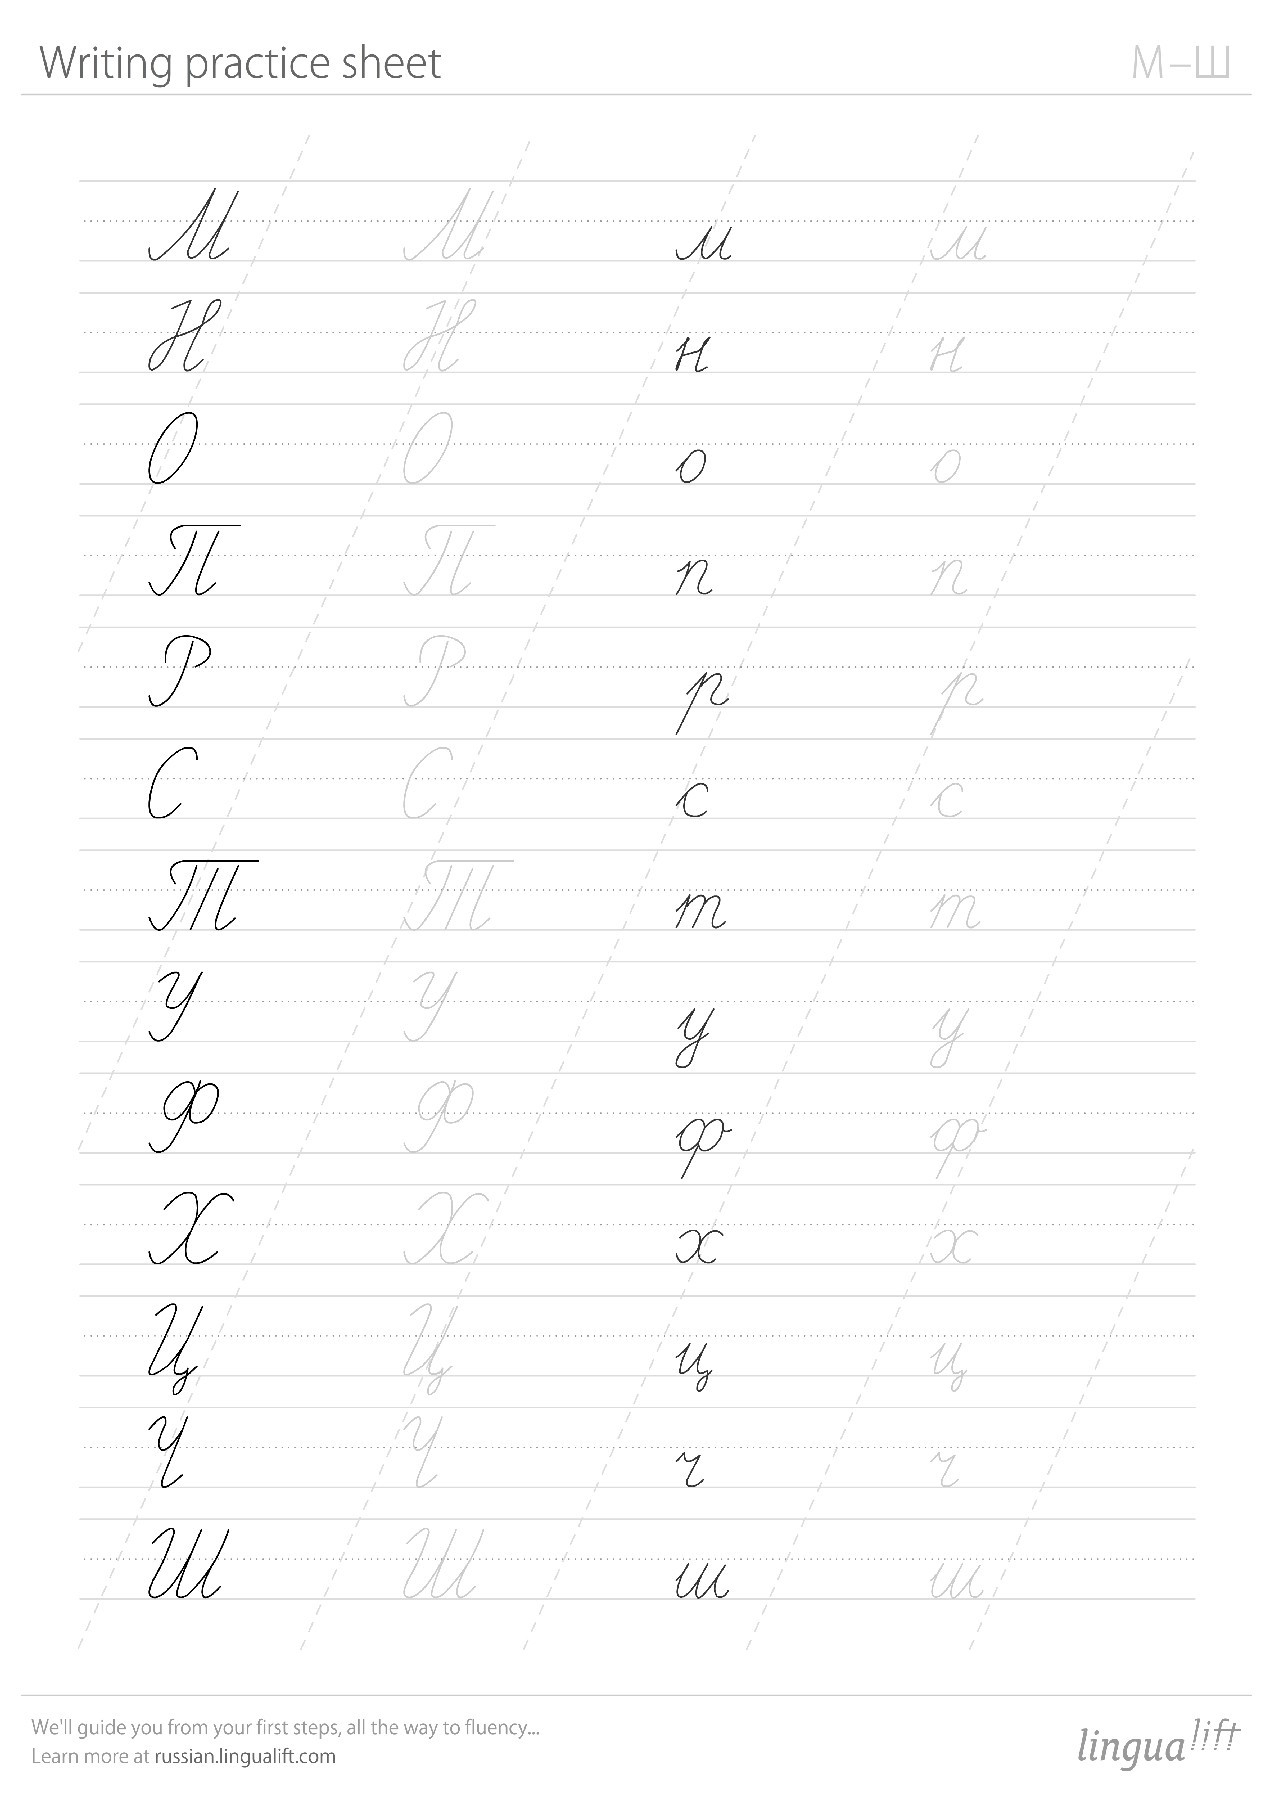 Writing practice sheet М–Ш
М М м м
Н Н н н
О О о о
П П п п
Р Р р р
С С с с
Т Т т т
У У у у
Ф Ф ф ф
Х Х х х
Ц Ц ц ц
Ч Ч ч ч
Ш Ш ш ш
We'll guide you from your first steps, all the way to fluency...
Learn more at russian.lingualift.com
lingualift